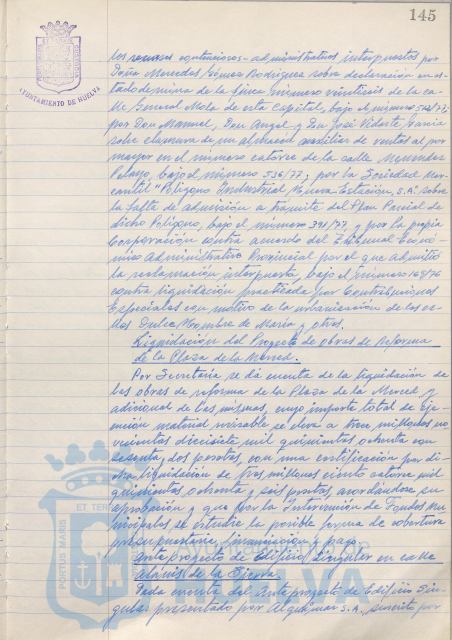 145
AYUNTAMIENTO DE HUELVA
los recursos contencioso-administrativos interpuestos por
Doña Mercedes Gómez Rodríguez sobre declaración en es-
tado de ruina de la finca número veintiseis de la ca-
lle General Mola de esta Capital, bajo el número 572/77;
por Don Manuel, Don Angel y Don José Vidarte García
sobre clausura de un almacén auxiliar de ventas al por
mayor en el número catorce de la calle Menendez
Pelayo, bajo el número 536/77; por la Sociedad Mer-
cantil "Polígono Industrial Nueva Estación, S.A." sobre
la falta de admisión a trámite del Plan Parcial de
dicho Polígono, bajo el número 391/77 y por la propia
Corporación contra acuerdo del Tribunal Econó-
mico Administrativo Provincial por el que admitió
la reclamación interpuesta bajo el número 168/76
contra liquidación practicada por Contribuciones
Especiales con motivo de la urbanización de las ca-
lles Dulce Nombre de María y otros.
Liquidación del Proyecto de obras de Reforma
de la Plaza de la Merced.
Por Secretaría se da cuenta de la liquidación de
las obras de reforma de la Plaza de la Merced y
adicional de las mismas, cuyo importe total de eje-
cución material revisable se eleva a tres millones no-
vecientas diecisiete mil quinientas ochenta con
sesenta y dos pesetas, con una certificación por di-
cha liquidación de tres millones ciento catorce mil
quinientas ochenta y seis pesetas, acordándose su
aprobación y que por la Intervención de Fondos Mu-
nicipales se estudie la posible forma de cobertura
presupuestaria, financiación y pago.
Anteproyecto de Edificio Singular en calle
Alanís de la Sierra.
Dada cuenta del Anteproyecto de Edificio Sin-
gular presentado por S.A., suscrito por
PORTUS MARIS ET TERRAE
HUELVA